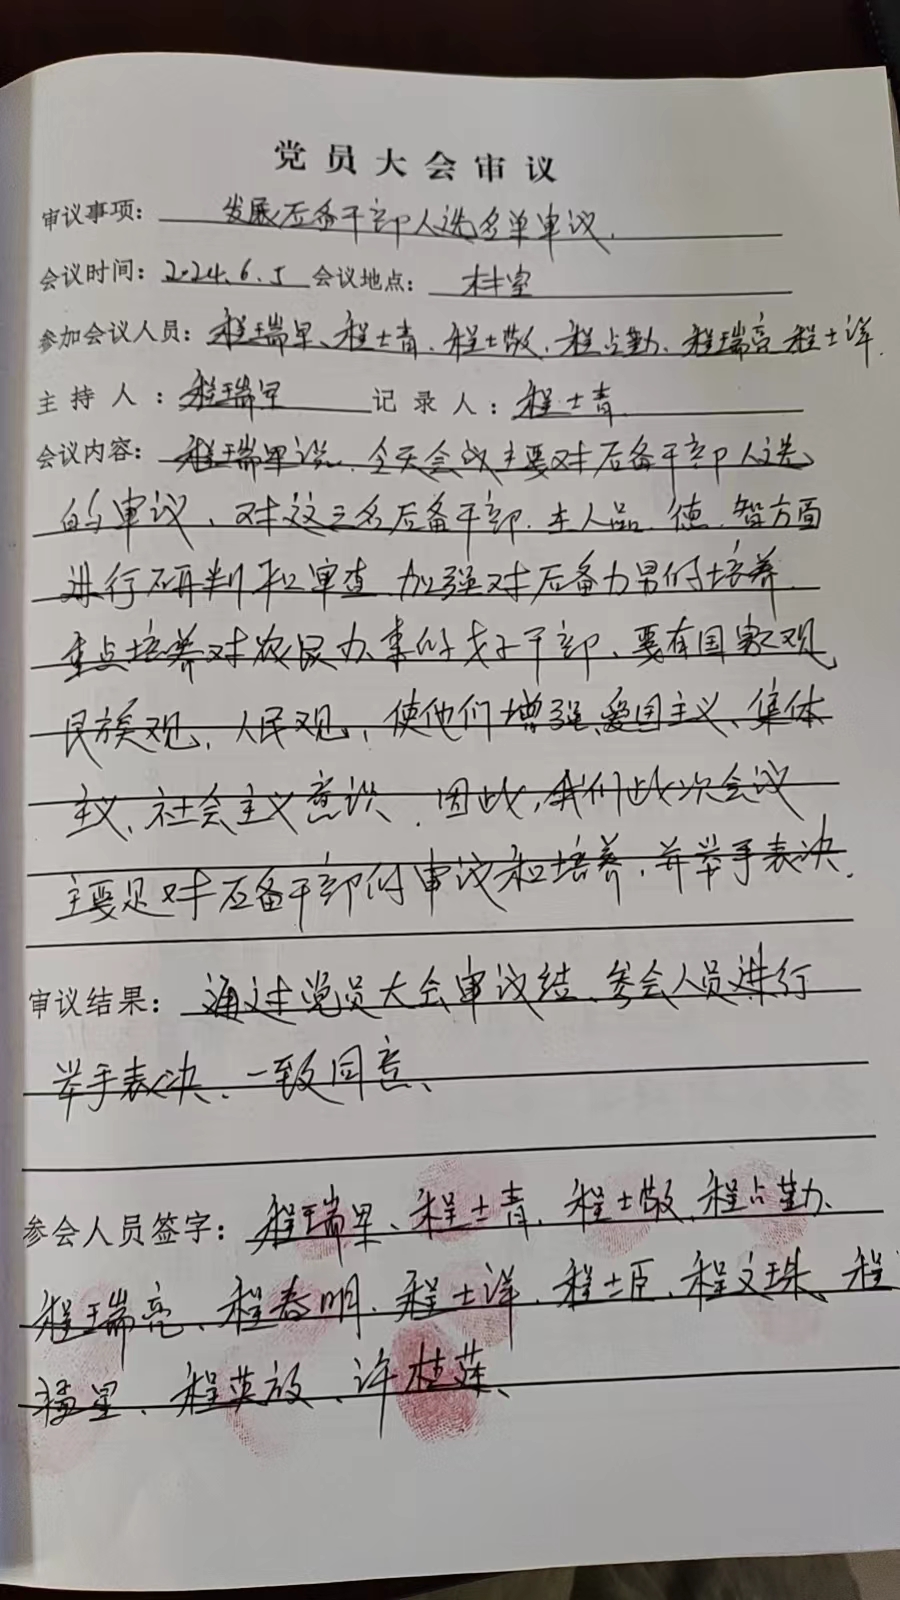 党员大会审议
审议事项：发展后备干部人选名单审议.
会议时间：2024.6.5 会议地点：村室
参加会议人员：程瑞早、程士青、程士敬、程占勤、程瑞亮 程士洋.
主持人：程瑞早 记录人：程士青
会议内容：程瑞早说.今天会议主要对后备干部人选
的审议、对这三名后备干部.在人品.德.智方面
进行研判和审查.加强对后备力量的培养.
重点培养对农民办事的好干部、要有国家观
民族观、人民观，使他们增强爱国主义、集体
主义、社会主义意识.因此,我们此次会议
主要是对后备干部的审议和培养，并举手表决.
审议结果：通过党员大会审议结、参会人员进行
举手表决、一致同意、
参会人员签字：程瑞早、程士青、程士敬、程占勤、
程瑞亮、程春明、程士洋、程士臣、程文珠、程
星、程英放、许桂莲、